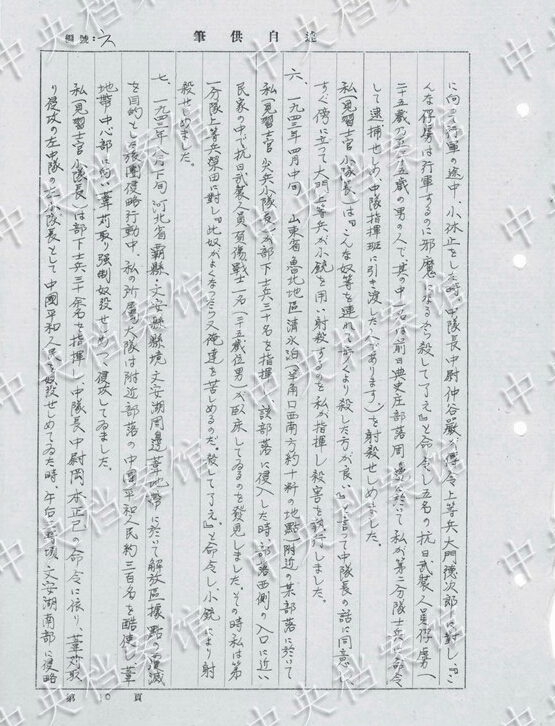 述自供筆
編號:
に向ふ行軍の途中、小休止をした時、中隊長中尉仲谷巌が傳令上等兵大門徳次郎に対し『こ
んな俘虜は行軍するのに邪魔になるから殺して了え』と命令し五名の抗日武装人員俘虜(
二十五歳乃至三十五歳の男の人で、其の中一名は前日典史庄部落周邊に於いて私が第二分隊士兵に命令
して逮捕せしめ、中隊指揮班に引き渡した人であります)を射殺せしめました。
私(見習士官小隊長)は『こんな奴等を連れて歩くより殺した方が良い』と言って中隊長の話に同意し
すぐ傍に立って大門上等兵が小銃を用い射殺するのを私が指揮し殺害を執行しました。
六、一九四三年四月中旬 山東省魯北地區清水泊(羊角口西南方約十粁の地點)附近の某部落に於いて
私(見習士官 尖兵小隊長)が部下士兵三十名を指揮し、該部落に侵入した時、部落西側の入口に近い
民家の中で抗日武装人員負傷戰士一名(二十五歳位男)が臥床してゐるのを發見しました。その時私は第
一分隊上等兵榮田に對し『此奴がよくなったら又俺達を苦しめるのだ。殺して了え』と命令し小銃により射
殺せしめました。
七、一九四三年六月下旬 河北省霸縣、文安縣縣境文安湖周邊葦地帶に於いて解放區據點の覆滅
を目的とする旅團侵略行動中、私の所屬大隊は附近部落の中國平和人民約三百名を酷使し葦
地帶中心部に向い葦苅取り強制奴役せしめつつ侵攻してゐました。
私(見習士官小隊長)は部下士兵三十余名を指揮し、中隊長中尉岡本正己の命令に依り、葦苅取
り侵攻の左中隊の左小隊長として中國平和人民を奴役せしめてゐた時、午后二時頃、文安湖南部に侵略
第 0 頁
中央档案馆